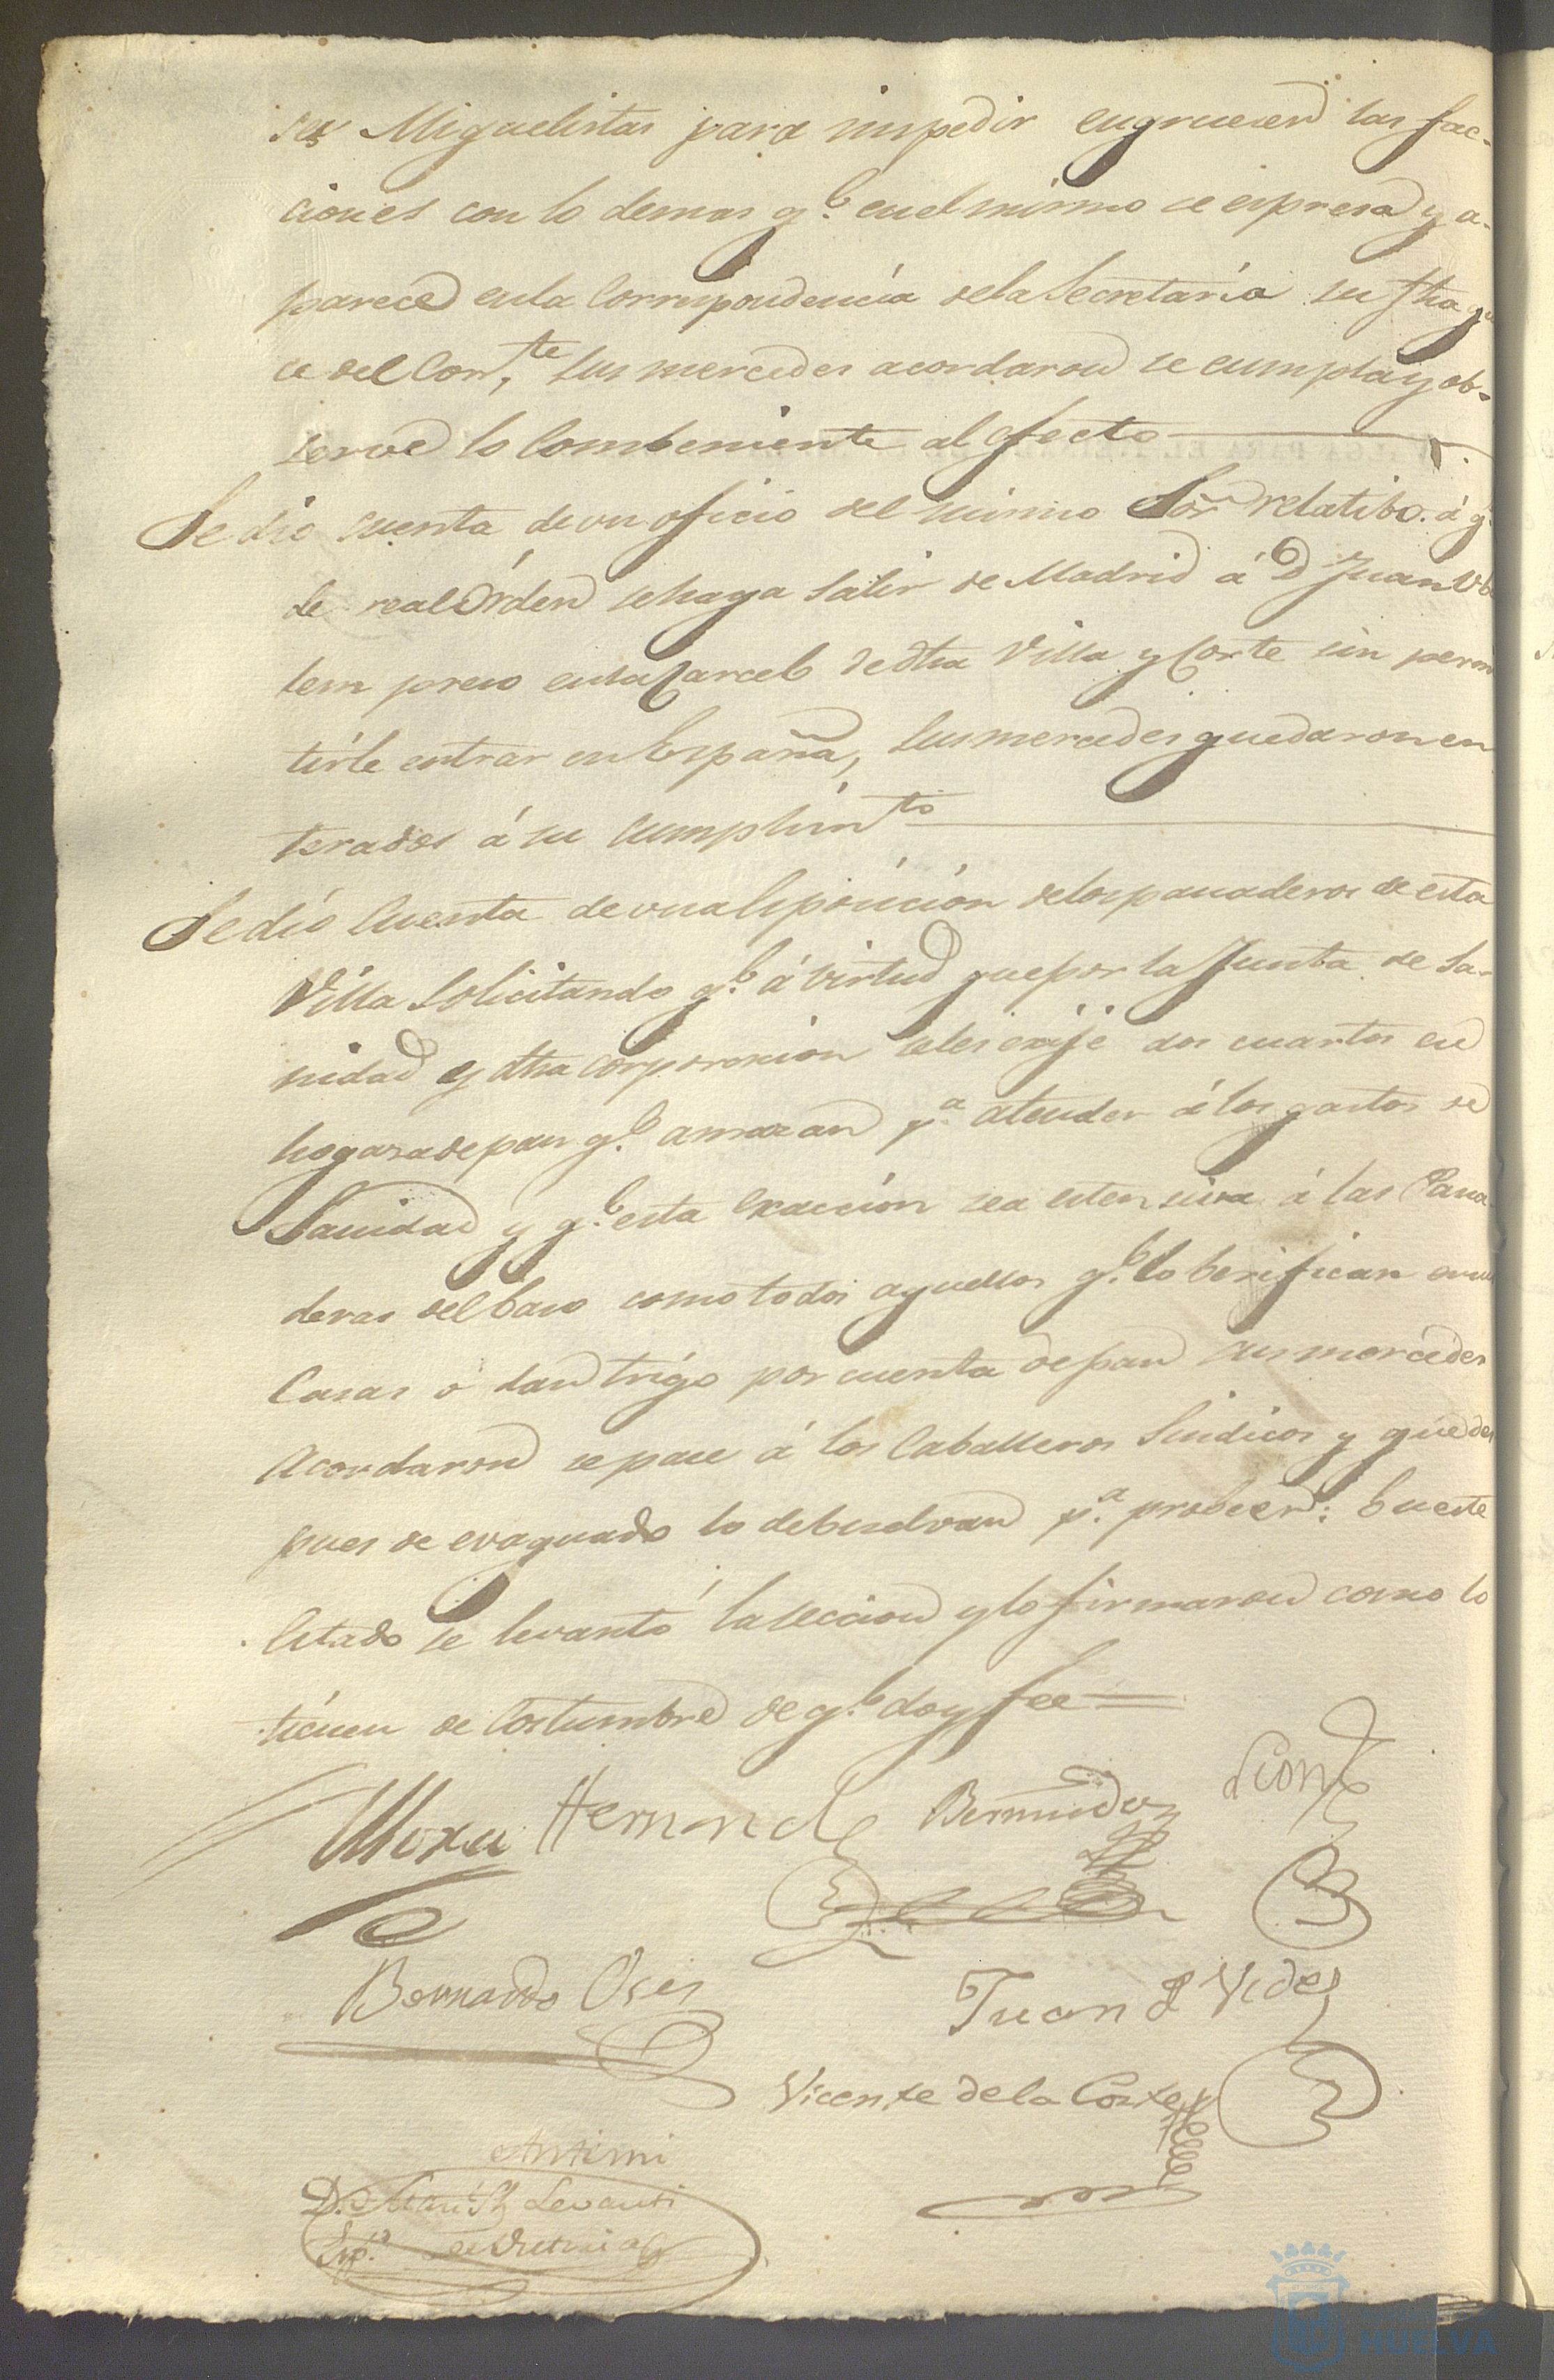 ses Miguelistas para impedir engruesen las fac-
ciones con lo demas q.e en el mismo se espresa y a-
parece en la Correspondencia de la Secretaría su fha
ce del Corr.te sus mercedes acordaron se cumpla y ob-
serve lo Combeniente al efecto
Se dio cuenta de un oficio del mismo Sor relatibo á q
de real Orden se haga salir de Madrid á D Juan
tem preso en la Carcel de dha Villa y Corte sin permi
tirle entrar en España, sus mercedes quedaron en
terados á su cumplim.to
Se dió Cuenta de una Esposición de los panaderos de esta
Villa solicitando q.e á virtud que por la Junta de Sa-
nidad y dha corporacion se les exije dos cuartos en
hogaza de pan q.e amazan p.a atender á los gastos de
Sanidad y q.e esta exaccion sea estensiva á las Pana
deras del baso como todos aquellos q.e lo berifican en sus
Casas o dan trigo por cuenta de pan sus mercedes
acordaron se pase á los Caballeros Sindicos y que des
pues de evaquado lo debuelvan p.a probeer: En este
Estado se levantó la seccion y lo firmaron como lo
tienen de Costumbre de q.e doy fee
Mora Hernand Bermudez
Bernardo Oses Juan de Vides
Vicente de la Corte
Antemi
D. Levanti